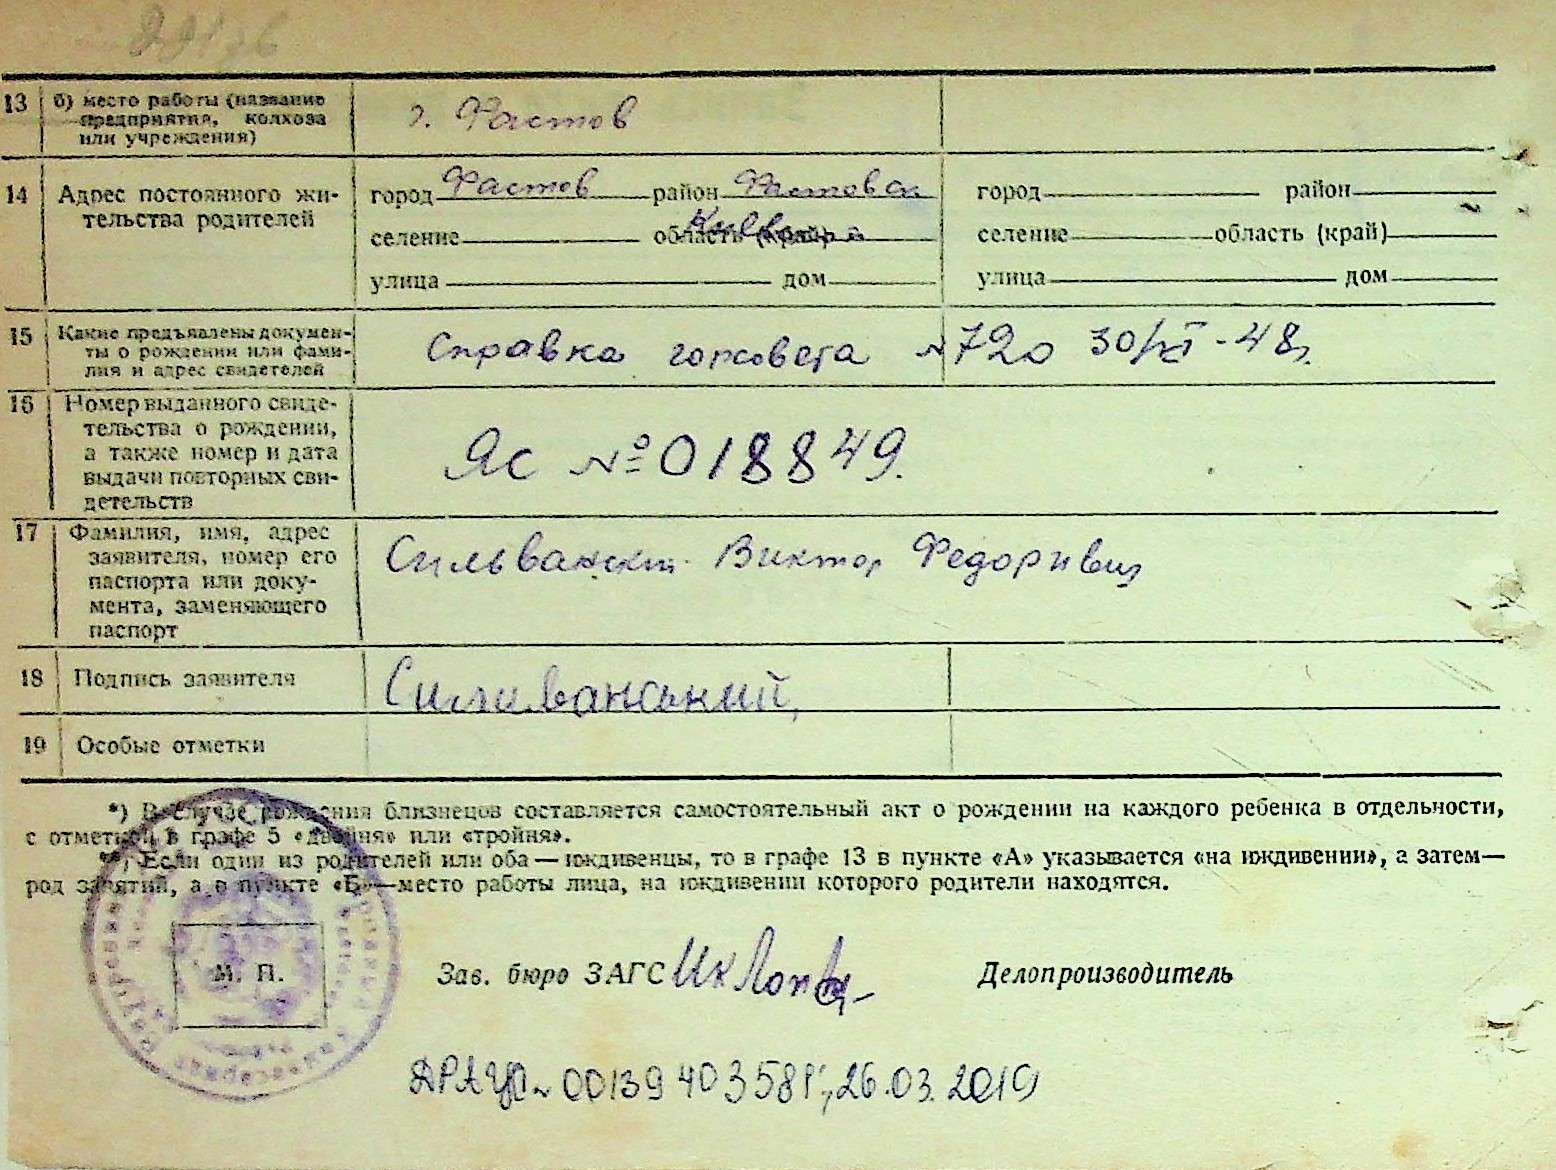 13 б) место работы (название
предприятия, колхоза
или учреждения)
г. Фастов
14 Адрес постоянного жи-
тельства родителей
город Фастов район Фастовск
селение область (край)
улица дом
город район
селение область (край)
улица дом
15 Какие предъявлены докумен-
ты о рождении или фами-
лия и адрес свидетелей
Справка горсовета №720 30/XI-48г.
16 Номер выданного свиде-
тельства о рождении,
а также номер и дата
выдачи повторных сви-
детельств
Яс №018849.
17 Фамилия, имя, адрес
заявителя, номер его
паспорта или доку-
мента, заменяющего
паспорт
Сильванский Виктор Федорович
18 Подпись заявителя
Силиванський
19 Особые отметки
*) В случае рождения близнецов составляется самостоятельный акт о рождении на каждого ребенка в отдельности,
с отметкой в графе 5 «двойня» или «тройня».
**) Если один из родителей или оба — иждивенцы, то в графе 13 в пункте «А» указывается «на иждивении», а затем—
род занятий, а в пункте «Б»—место работы лица, на иждивении которого родители находятся.
М. П.
Зав. бюро ЗАГС
Делопроизводитель
26.03.2019